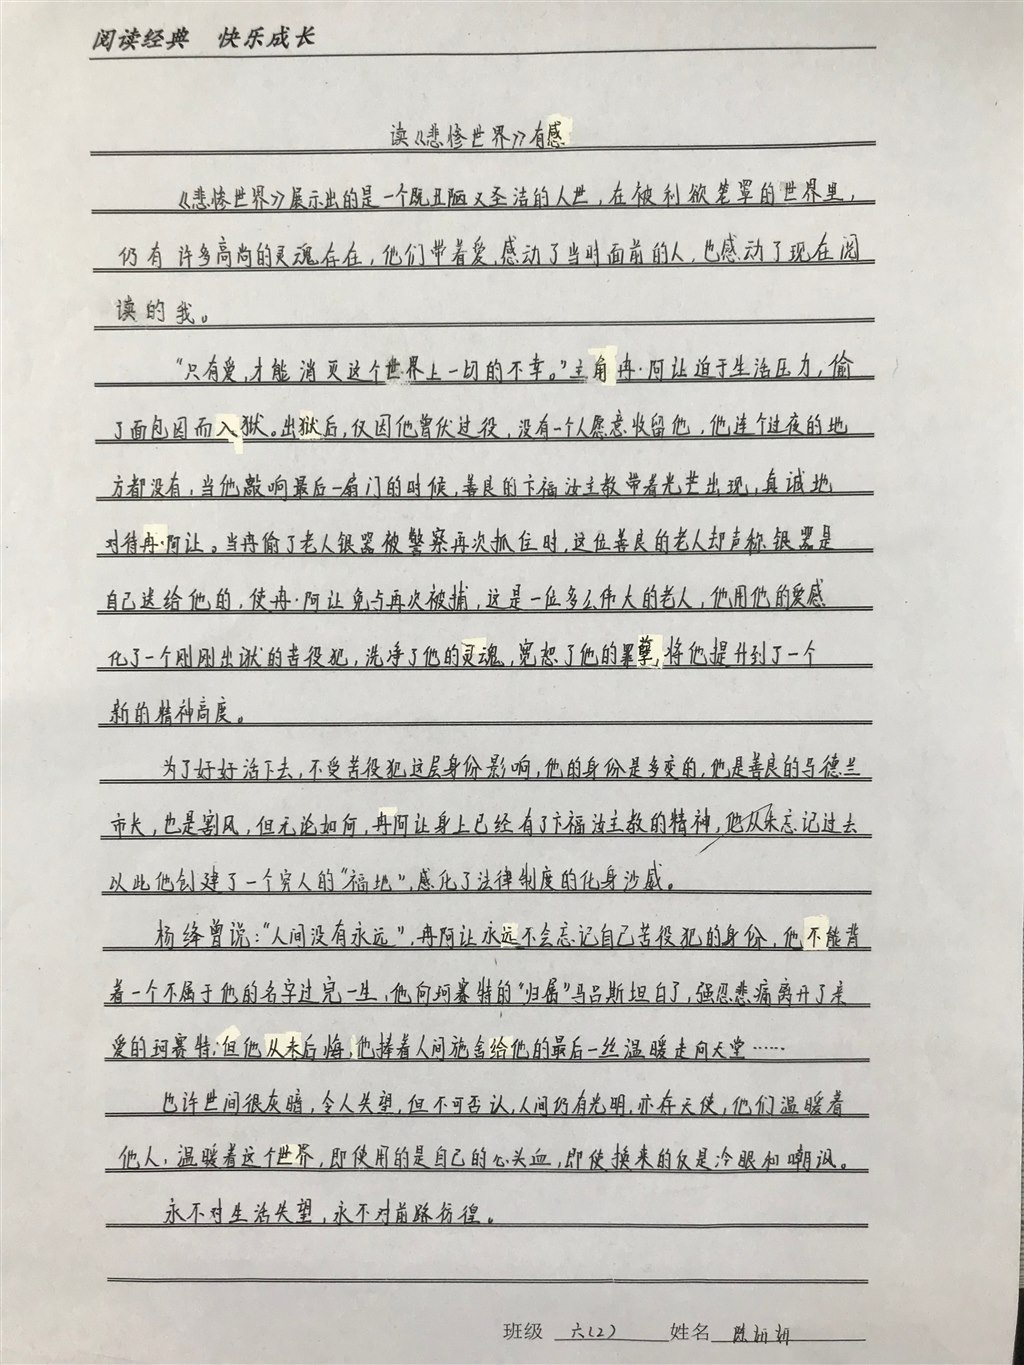 阅读经典 快乐成长
读《悲惨世界》有感
《悲惨世界》展示出的是一个既丑陋又圣洁的人世，在被利欲笼罩的世界里，
仍有许多高尚的灵魂存在，他们带着爱，感动了当时面前的人，也感动了现在阅
读的我。
“只有爱，才能消灭这个世界上一切的不幸。”主角冉·阿让迫于生活压力，偷
了面包因而入狱。出狱后，仅因他曾伏过役，没有一个人愿意收留他，他连个过夜的地
方都没有，当他敲响最后一扇门的时候，善良的卞福汝主教带着光芒出现，真诚地
对待冉·阿让。当冉偷了老人银器被警察再次抓住时，这位善良的老人却声称银器是
自己送给他的，使冉·阿让免与再次被捕，这是一位多么伟大的老人，他用他的爱感
化了一个刚刚出狱的苦役犯，洗净了他的灵魂，宽恕了他的罪孽，将他提升到了一个
新的精神高度。
为了好好活下去，不受苦役犯这层身份影响，他的身份是多变的，他是善良的马德兰
市长，也是割风，但无论如何，冉阿让身上已经有了卞福汝主教的精神，他从未忘记过去
以此他创建了一个穷人的“福地”，感化了法律制度的化身沙威。
杨绛曾说：“人间没有永远”，冉阿让永远不会忘记自己苦役犯的身份，他不能背
着一个不属于他的名字过完一生，他向珂赛特的“归属”马吕斯坦白了，强忍悲痛离开了亲
爱的珂赛特，但他从未后悔，他捧着人间施舍给他的最后一丝温暖走向天堂……
也许世间很灰暗，令人失望，但不可否认，人间仍有光明，亦存天使，他们温暖着
他人，温暖着这个世界，即使用的是自己的心头血，即使换来的仅是冷眼和嘲讽。
永不对生活失望，永不对前路彷徨。
班级 六(2) 姓名 陈妍妍